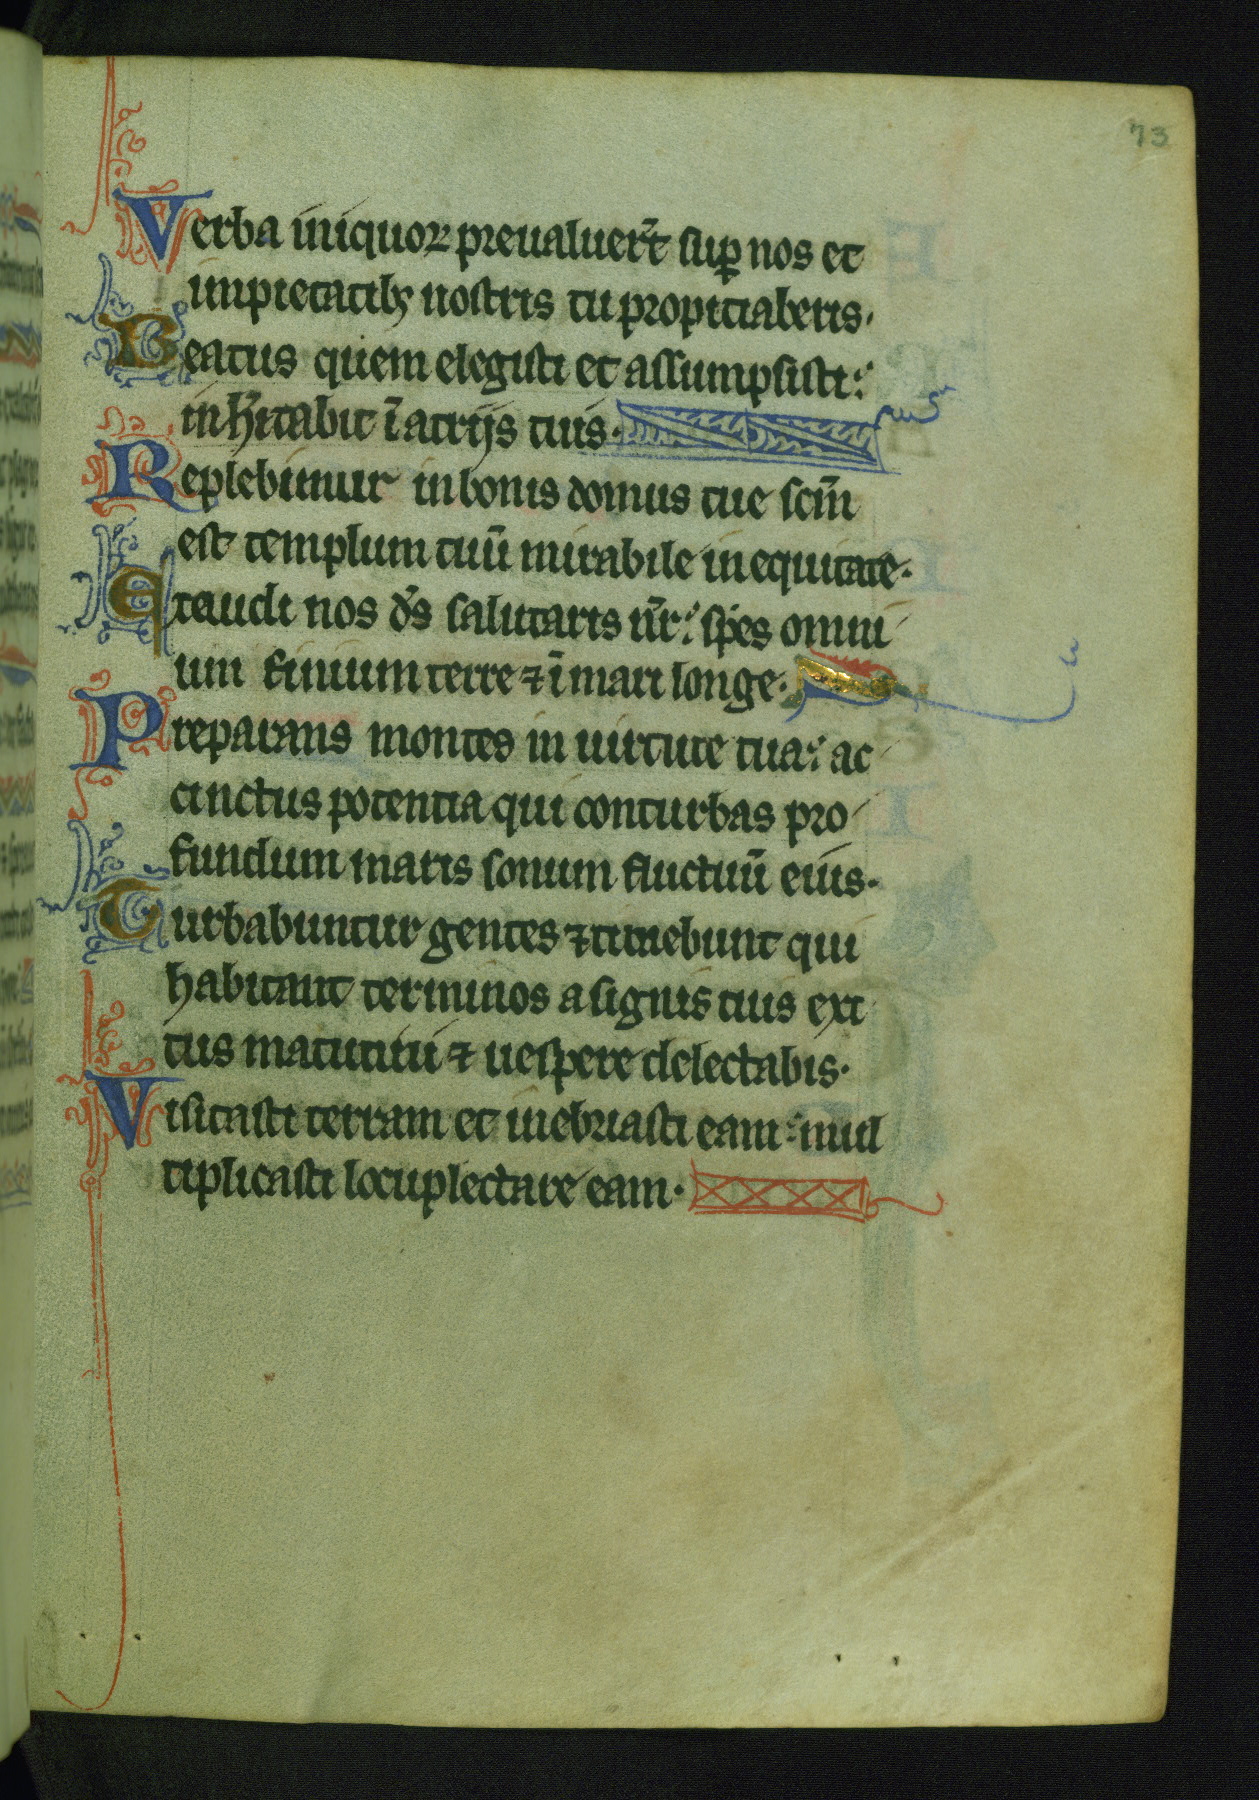 73
Verba iniquoꝝ preualuer̄t sup̱ nos et
impietatibꝫ nostris tu propiciaberis.
Beatus quem elegisti et assumpsisti:
inh̄itabit ī atrijs tuis.
Replebimur in bonis domus tue scm̄
est templum tuū mirabile in equitate.
Exaudi nos d̄s salutaris nr̄: spes omni
um finium terre ⁊ ī mari longe.
Preparans montes in uirtute tua: ac
cinctus potentia qui conturbas pro
fundum maris sonum fluctuū eius.
Turbabuntur gentes ⁊ timebunt qui
habitant terminos a signis tuis exi
tus matutini ⁊ uespere delectabis.
Visitasti terram et inebriasti eam: mul
tiplicasti locuplectare eam.